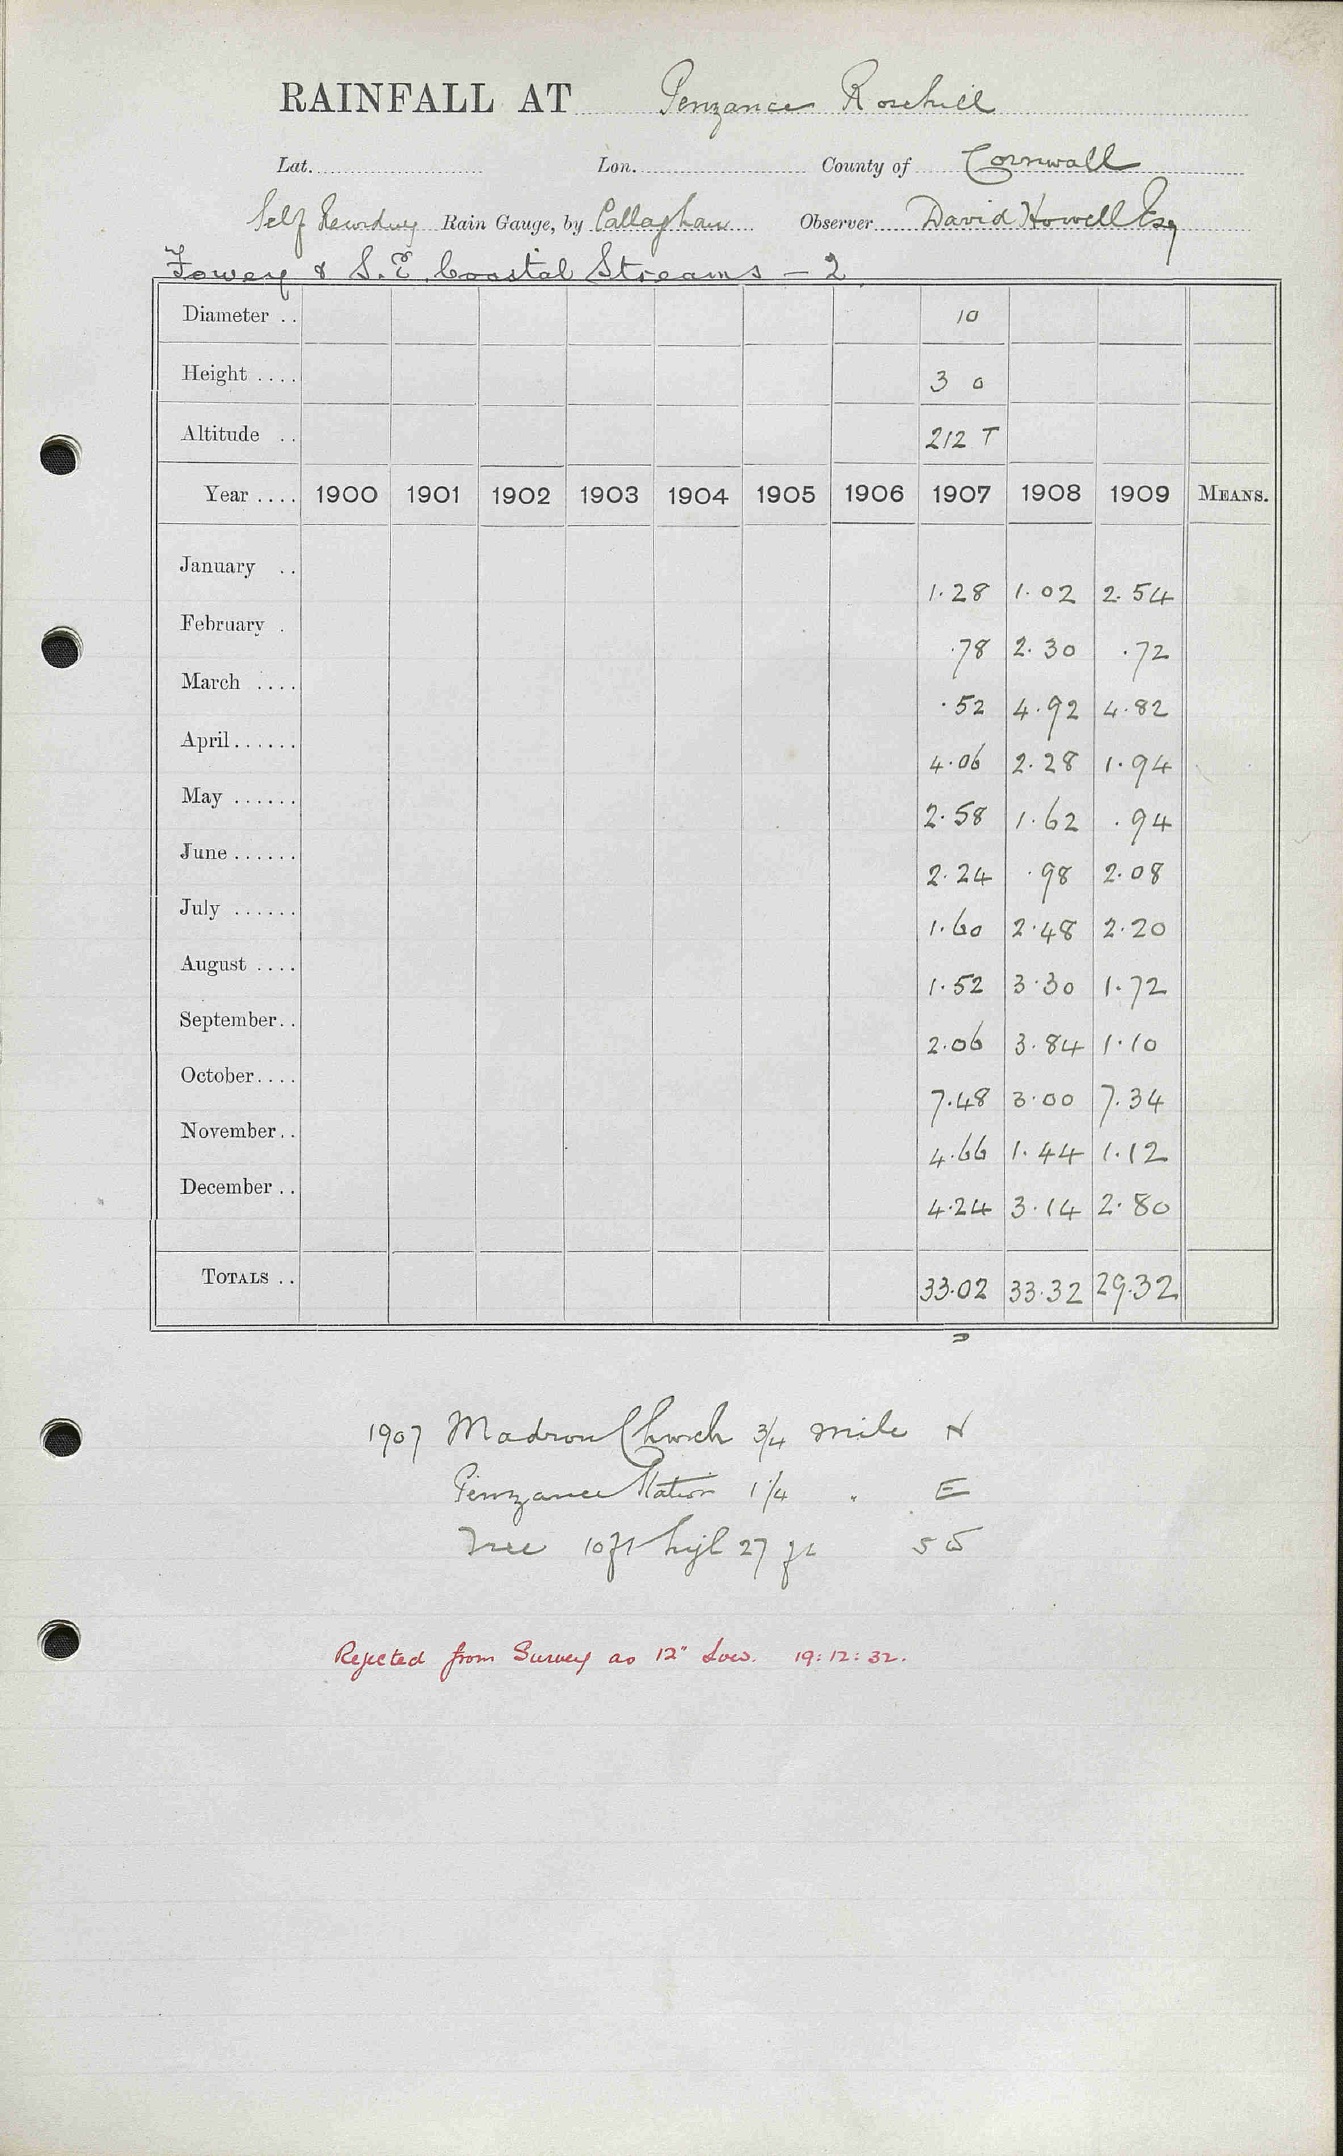 RAINFALL AT Penzance Rosehill
Lat. Lon. County of Cornwall
Self Recording Rain Gauge, by Callaghan Observer David Howell Esq
Fowey & S.E. Coastal Streams - 2
Diameter .. 10
Height .... 3 0
Altitude .. 212 T
Year .... 1900 1901 1902 1903 1904 1905 1906 1907 1908 1909 MEANS.
January ..
1.28 1.02 2.54
February .
.78 2.30 .72
March ....
.52 4.92 4.82
April ......
4.06 2.28 1.94
May ......
2.58 1.62 .94
June ......
2.24 .98 2.08
July ......
1.60 2.48 2.20
August ....
1.52 3.30 1.72
September ..
2.06 3.84 1.10
October ....
7.48 3.00 7.34
November ..
4.66 1.44 1.12
December ..
4.24 3.14 2.80
TOTALS .. 33.02 33.32 29.32
1907 Madron Church 3/4 mile N
Penzance Station 1 1/4 " E
Tree 10 ft high 27 ft SW
Rejected from Survey as 12" Low. 19:12:32.